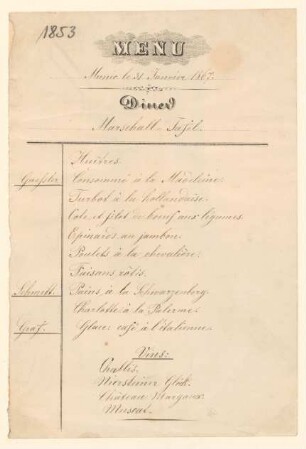 1853
MENU
Munic le 31 Janvier 1867.
Diner
Marschall-Tafel.
Huîtres.
Consommé à la Madeleine.
Turbot à la hollandaise.
Côte et filet de boeuf aux legumes.
Epinards au jambon.
Poulets à la chevalière.
Faisans rôtis.
Pains à la Schwarzenberg.
Charlotte à la Palerme.
Graf. Glace café à l'italienne.
Vins:
Chablis.
Niersteiner Glöck.
Château Margaux.
Muscat.